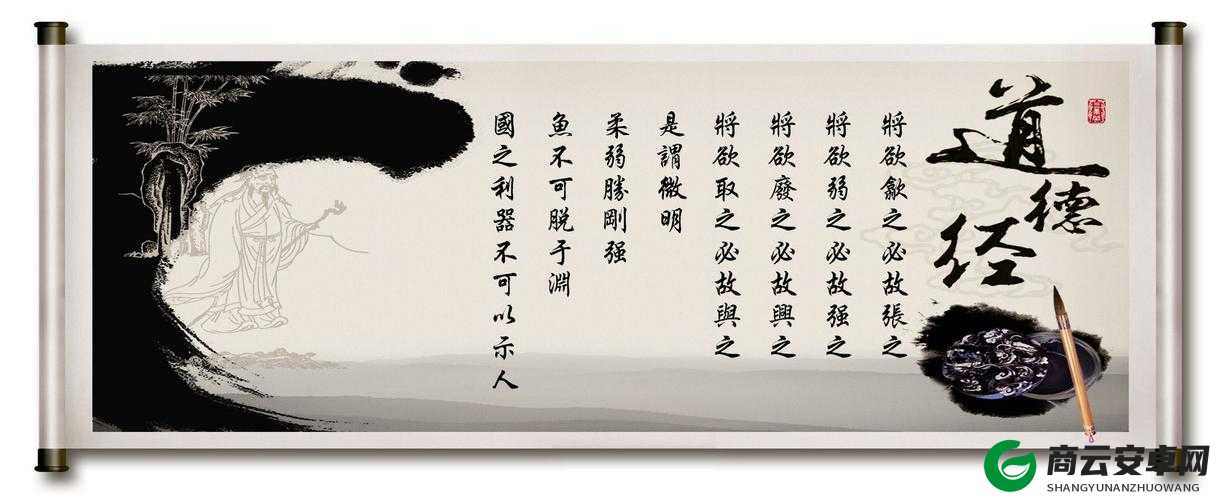 道德经
將欲歙之必故張之
將欲弱之必故强之
將欲廢之必故興之
將欲取之必故與之
是謂微明
柔弱勝剛强
魚不可脱于淵
國之利器不可以示人
商云安卓网
SHANGYUNANZHUOWANG